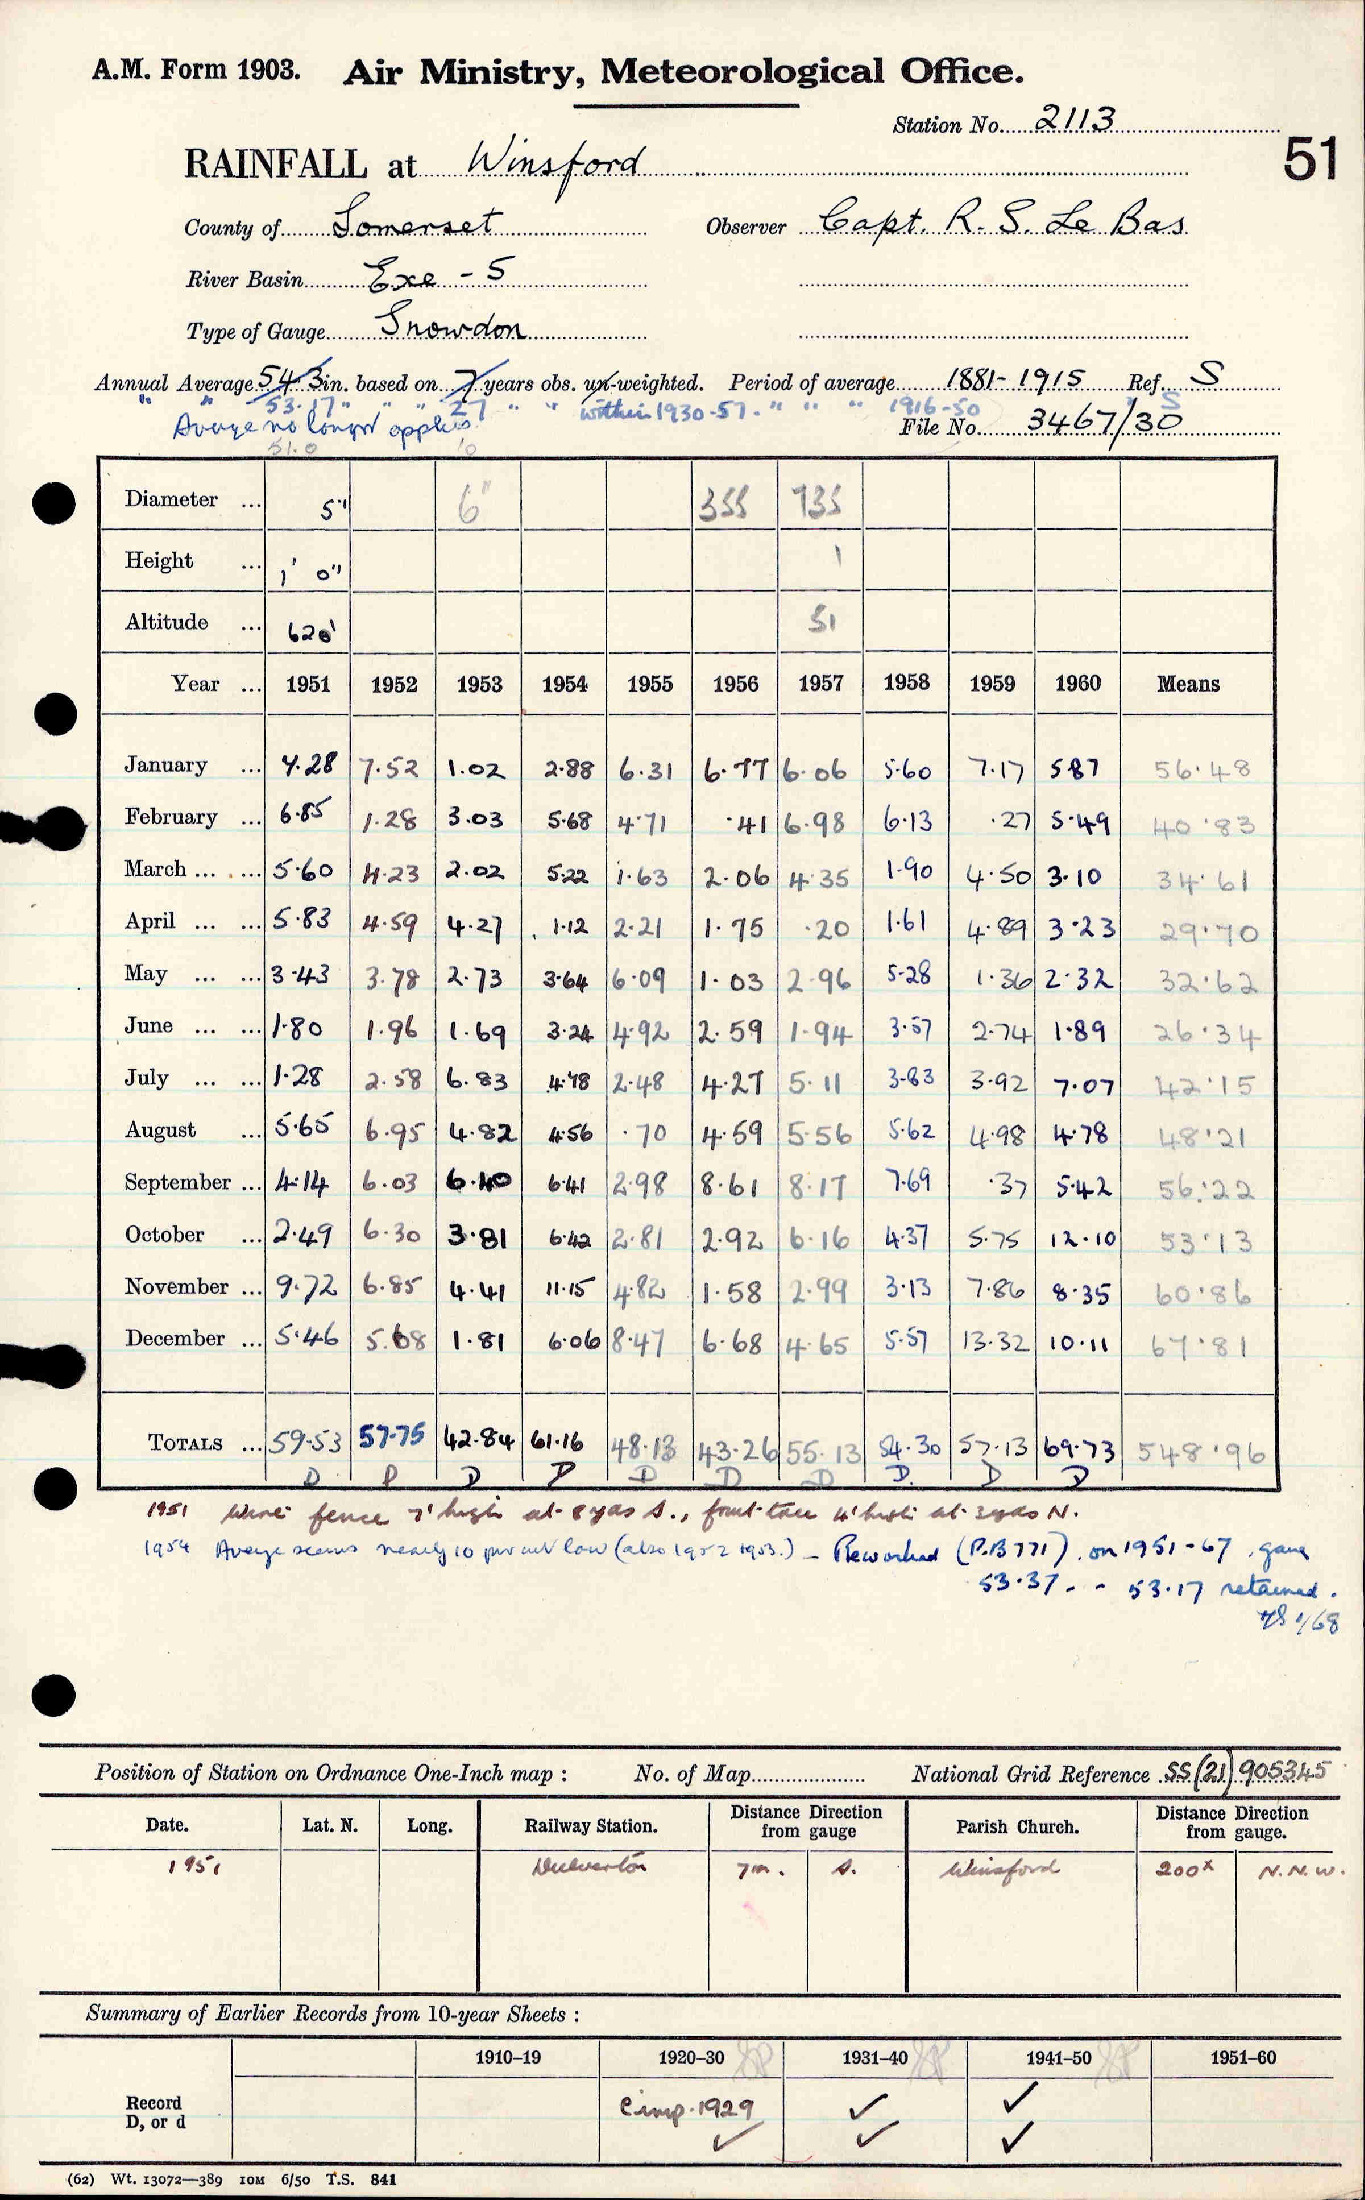 A.M. Form 1903. Air Ministry, Meteorological Office.
Station No. 2113
51
RAINFALL at Winsford
County of Somerset Observer Capt. R. S. Le Bas
River Basin Exe - 5
Type of Gauge Snowdon
Annual Average 54.3 in. based on 7 years obs. un-weighted. Period of average 1881-1915 Ref. S
" " 53.17" " " 27 " " within 1930-57. " " " 1916-50 S
Average no longer applies File No. 3467/30
51.0 10
Diameter ... 5" 6" 355 735
Height ... 1' 0" 1
Altitude ... 620' 51
Year ... 1951 1952 1953 1954 1955 1956 1957 1958 1959 1960 Means
January ... 7.28 7.52 1.02 2.88 6.31 6.77 6.06 5.60 7.17 5.87 56.48
February ... 6.85 1.28 3.03 5.68 4.71 .41 6.98 6.13 .27 5.49 40.83
March ... ... 5.60 4.23 2.02 5.22 1.63 2.06 4.35 1.90 4.50 3.10 34.61
April ... ... 5.83 4.59 4.27 1.12 2.21 1.75 .20 1.61 4.89 3.23 29.70
May ... ... 3.43 3.78 2.73 3.64 6.09 1.03 2.96 5.28 1.36 2.32 32.62
June ... ... 1.80 1.96 1.69 3.24 4.92 2.59 1.94 3.57 2.74 1.89 26.34
July ... ... 1.28 2.58 6.83 4.78 2.48 4.27 5.11 3.83 3.92 7.07 42.15
August ... 5.65 6.95 4.82 4.56 .70 4.59 5.56 5.62 4.98 4.78 48.21
September ... 4.14 6.03 6.40 6.41 2.98 8.61 8.17 7.69 .37 5.42 56.22
October ... 2.49 6.30 3.81 6.42 2.81 2.92 6.16 4.37 5.75 12.10 53.13
November ... 9.72 6.85 4.41 11.15 4.82 1.58 2.99 3.13 7.86 8.35 60.86
December ... 5.46 5.68 1.81 6.06 8.47 6.68 4.65 5.57 13.32 10.11 67.81
TOTALS ... 59.53 57.75 42.84 61.16 48.13 43.26 55.13 54.30 57.13 69.73 548.96
D D D D D D D D D D
1951 Wire fence 7' high at 8 yds S., fruit tree 4' high at 3 yds N.
1954 Average seems nearly 10 per cent low (also 1952 1953.) - Reworked (P.B 771) on 1951-67 gave
53.37 - - 53.17 retained.
1/68
Position of Station on Ordnance One-Inch map : No. of Map National Grid Reference SS (21) 905345
Date. Lat. N. Long. Railway Station. Distance Direction from gauge Parish Church. Distance Direction from gauge.
1951 Dulverton 7m. S. Winsford 200x N.N.W.
Summary of Earlier Records from 10-year Sheets :
1910–19 1920–30 1931–40 1941–50 1951–60
Record ✓ ✓
D, or d Cimp. 1929 ✓ ✓ ✓
(62) Wt. 13072—389 10M 6/50 T.S. 841